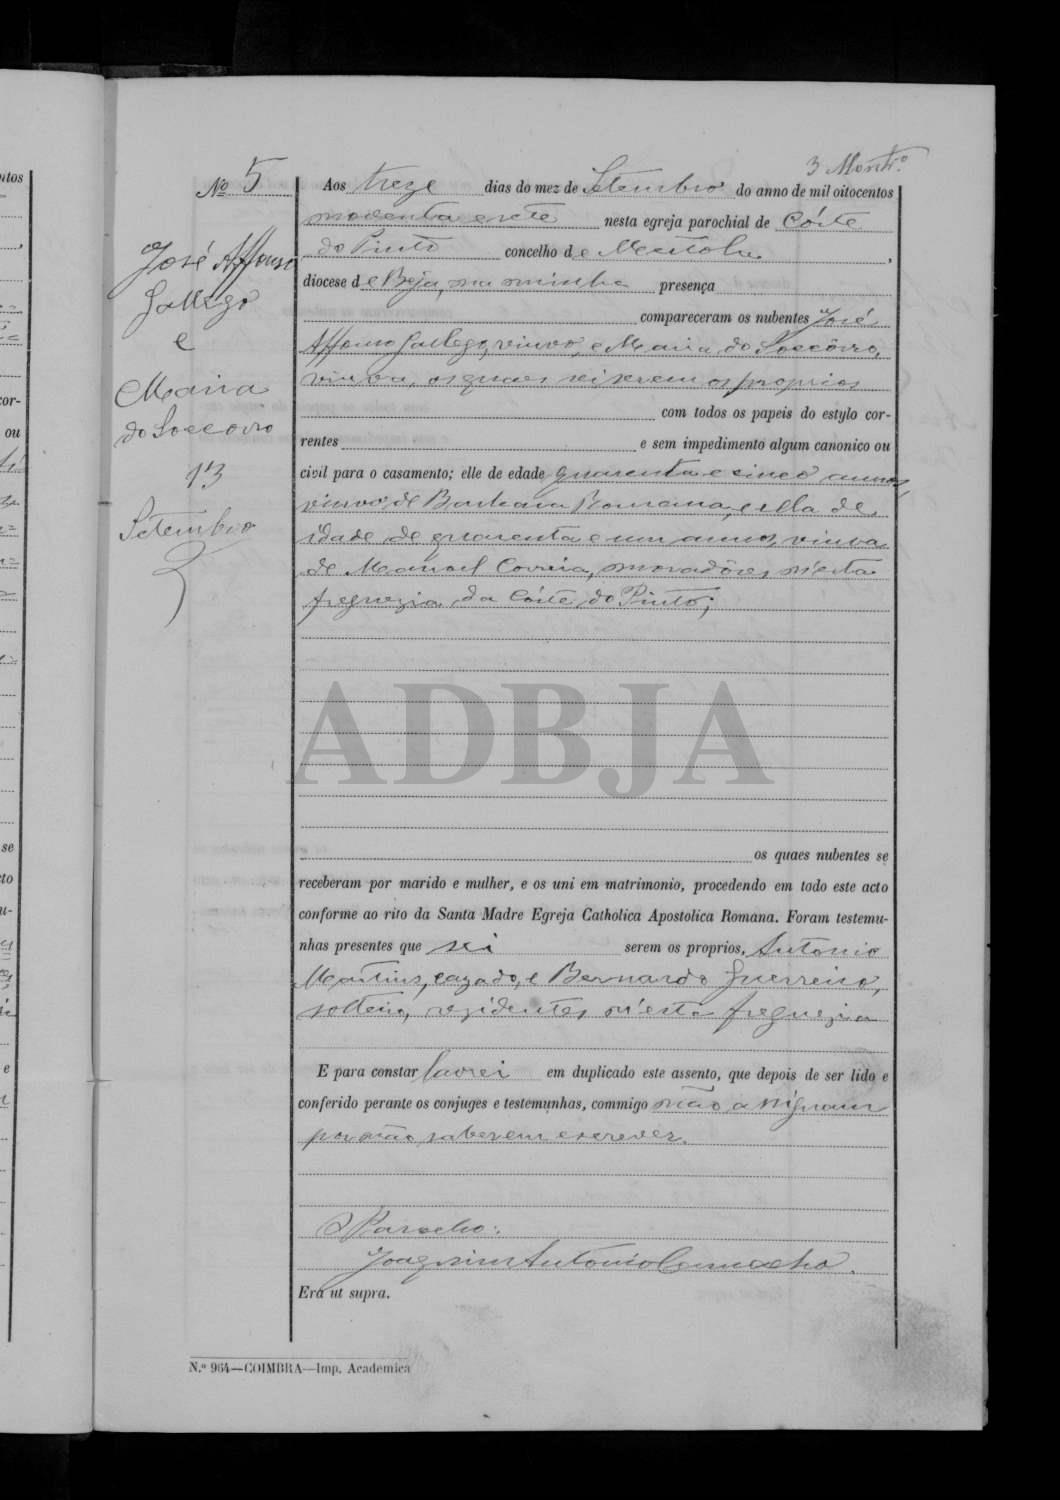 3
Nº 5
José Affonso
Gallego
e
Maria
do Soccorro
13
Setembro
Aos treze dias do mez de Setembro do anno de mil oitocentos
noventa e sete nesta egreja parochial de Côrte
do Pinto concelho de Mertola,
diocese de Beja, na minha presença
compareceram os nubentes José
Affonso Gallego, viuvo, e Maria do Soccôrro,
viuva, os quaes sei serem os proprios
com todos os papeis do estylo cor-
rentes e sem impedimento algum canonico ou
civil para o casamento; elle de edade quarenta e cinco annos,
viuvo de Barbara Romana, e ella de
idade de quarenta e um annos, viuva
de Manoel Correia, moradôres n'esta
freguezia da Côrte do Pinto;
ADBJA
os quaes nubentes se
receberam por marido e mulher, e os uni em matrimonio, procedendo em todo este acto
conforme ao rito da Santa Madre Egreja Catholica Apostolica Romana. Foram testemu-
nhas presentes que sei serem os proprios, Antonio
Martins, cazado, e Bernardo Guerreiro,
solteiro, rezidentes n'esta freguezia
E para constar lavrei em duplicado este assento, que depois de ser lido e
conferido perante os conjuges e testemunhas, commigo não assignam
por não saberem escrever.
O Parocho:
Joaquim Antonio
Era ut supra.
N.º 964—COIMBRA—Imp. Academica
se
ou
e